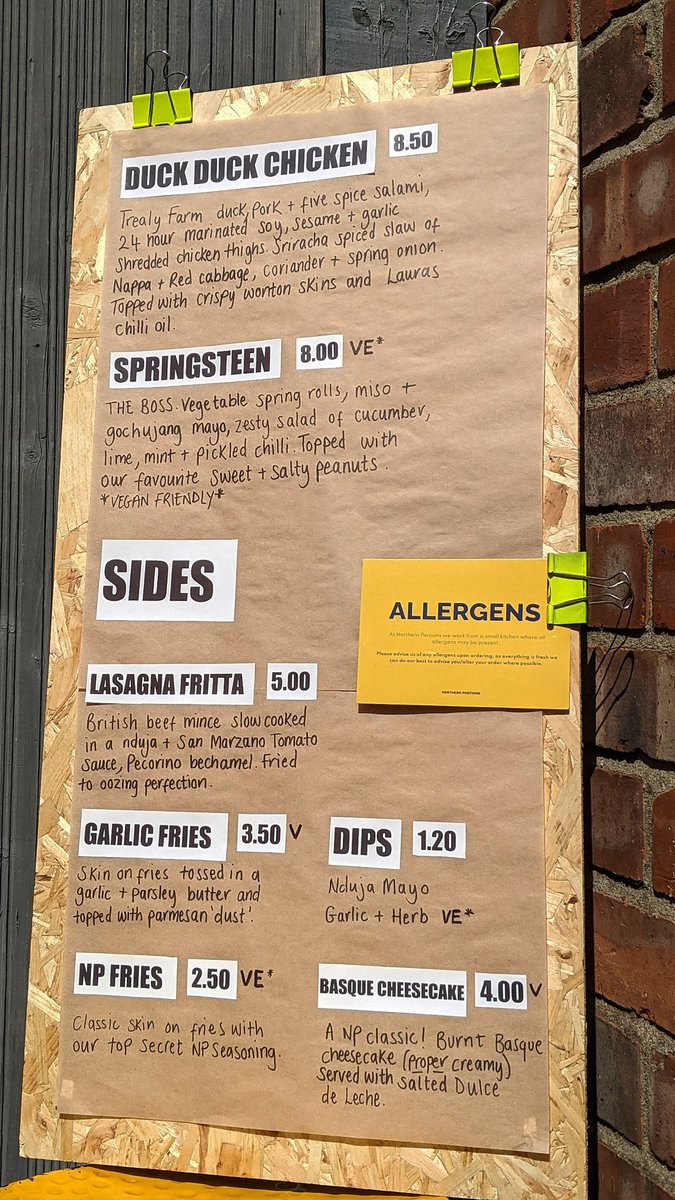 DUCK DUCK CHICKEN 8.50
Trealy Farm duck, pork + five spice salami,
24 hour marinated soy, sesame + garlic
shredded chicken thighs. Sriracha spiced slaw of
Nappa + Red cabbage, coriander + spring onion.
Topped with crispy wonton skins and Lauras
chilli oil.
SPRINGSTEEN 8.00 VE*
THE BOSS. Vegetable spring rolls, miso +
gochujang mayo, zesty salad of cucumber,
lime, mint + pickled chilli. Topped with
our favourite sweet + salty peanuts.
*VEGAN FRIENDLY*
SIDES
ALLERGENS
At Northern Portions we work from a small kitchen where all
allergens may be present.
Please advise us of any allergens upon ordering, as everything is fresh we
can do our best to advise you/alter your order where possible.
NORTHERN PORTIONS
LASAGNA FRITTA 5.00
British beef mince slow cooked
in a nduja + San Marzano Tomato
sauce, Pecorino bechamel. Fried
to oozing perfection.
GARLIC FRIES 3.50 V
Skin on fries tossed in a
garlic + parsley butter and
topped with parmesan 'dust'.
DIPS 1.20
Nduja Mayo
Garlic + Herb VE*
NP FRIES 2.50 VE*
Classic skin on fries with
our top secret NP seasoning.
BASQUE CHEESECAKE 4.00 V
A NP classic! Burnt Basque
cheesecake (proper creamy)
served with salted Dulce
de Leche.